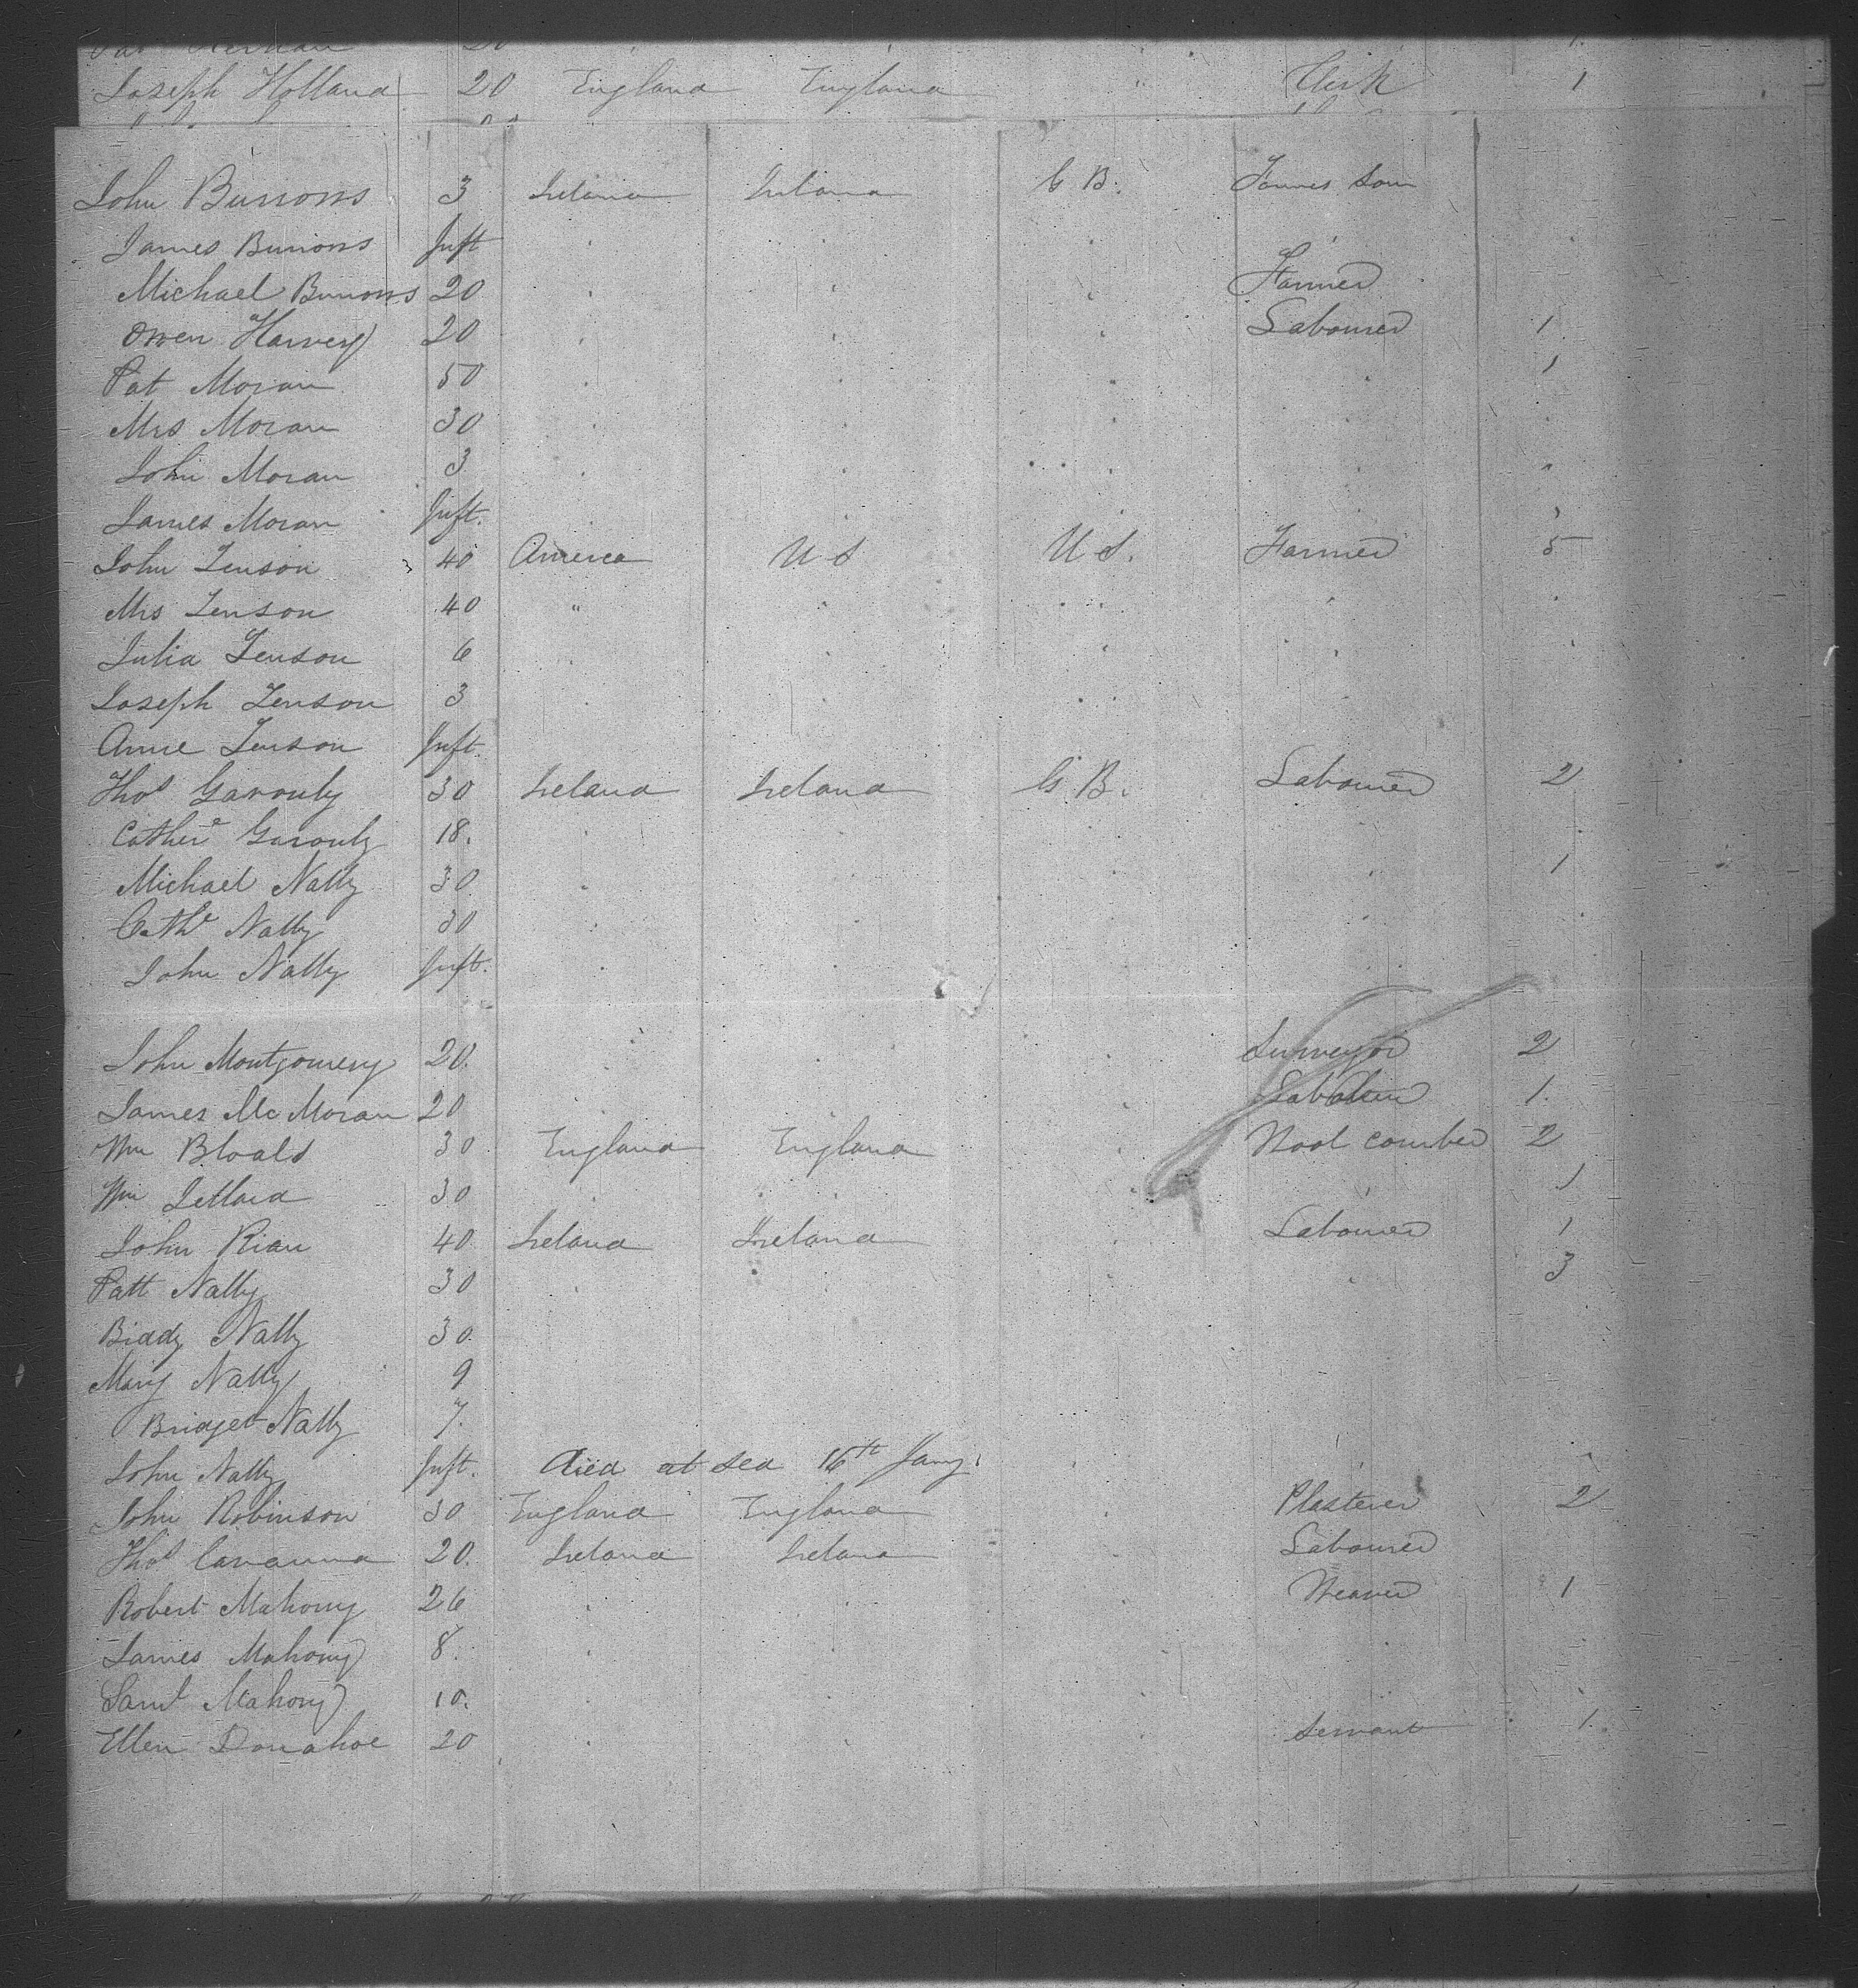 Joseph Holland 20 England England " Clerk 1
John Burrows 3 Ireland Ireland G B. Farmers Son
James Burrows Inft " " "
Michael Burrows 20 " " " Farmer
Owen Harvey 20 " " " Labourer 1
Pat Moran 50 " " " " 1
Mrs Moran 30 " " " "
John Moran 3 " " " " "
James Moran Inft. " " " "
John Jenson 40 America U S U S. Farmer 5
Mrs Jenson 40 " " " " "
Julia Jenson 6 " " " " "
Joseph Jenson 3 " " " "
Anne Jenson Inft.
Thos 30 Ireland Ireland G B. Labourer 2
Cathere 18. " " " " "
Michael Nally 30 " " " " 1
Cathe Nally 30 " " " " "
John Nally Inft. " " " "
John Montgomery 20. " " " Surveyor 2
James Mc Moran 20 " " " Labourer 1.
Wm 30 England England " Wool comber 2
Wm 30 " " " " 1
John Rian 40 Ireland Ireland Labourer 1
Patt Nally 30 " " " " 3
Biddy Nally 30.
Mary Nally 9
Bridget Nally 7.
John Nally Inft. died at sea 16th Jany.
John Robinson 30 England England " Plasterer 2
Thos Cavanna 20. Ireland Ireland Labourer
Robert Mahony 26 " " " Weaver 1
James Mahony 8. " " " "
Saml Mahony 10. " " "
Ellen Donahoe 20 " " " Servant 1.